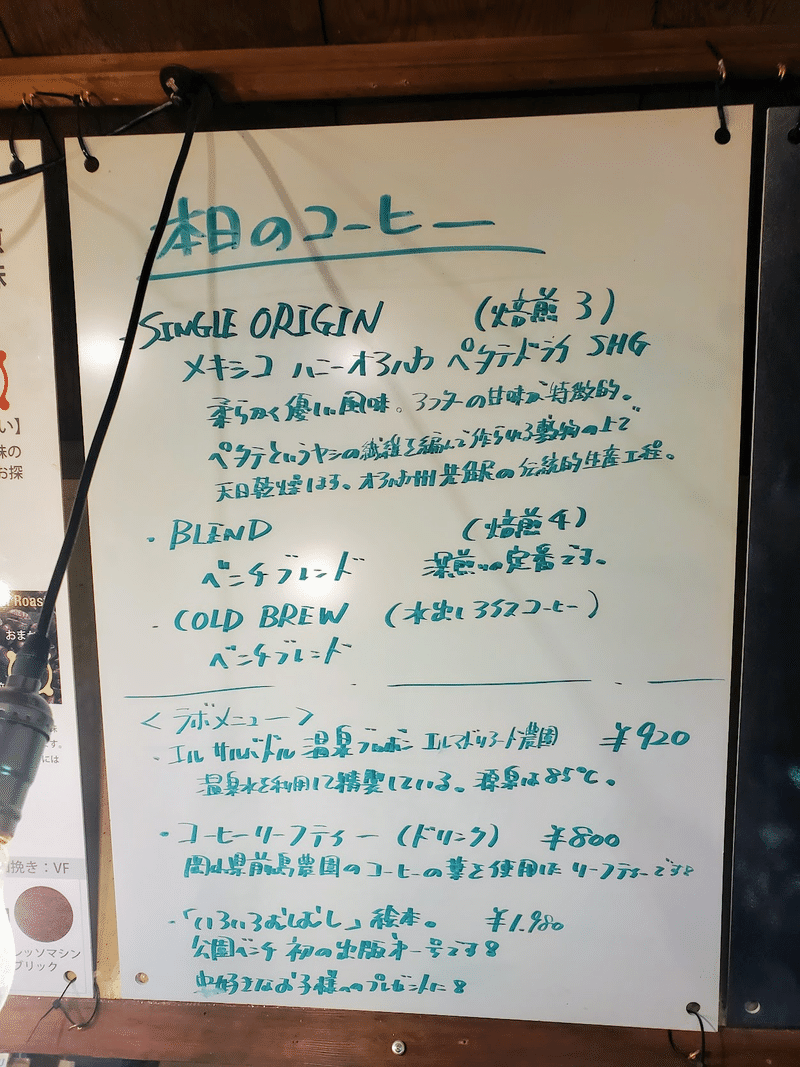 本日のコーヒー
・SINGLE ORIGIN (焙煎3)
メキシコ ハニー オアハカ ペタテドライ SHG
柔らかく優しい風味。アフターの甘味が特徴的。
ペタテというヤシの繊維を編んで作られる敷物の上で
天日乾燥します。オアハカ州 の伝統的生産工程。
・BLEND (焙煎4)
ベンチブレンド 深煎りの定番です。
・COLD BREW (水出しアイスコーヒー)
ベンチブレンド
<ラボメニュー>
・エルサルバドル 温泉ブルボン エルマドリアード農園 ¥920
温泉水を利用して精製している。源泉は85℃。
・コーヒーリーフティー (ドリンク) ¥800
岡山県前島農園のコーヒーの葉を使用したリーフティーです
・「いろいろむしむし」絵本。 ¥1,980
公園ベンチ 初の出版 第一号です
虫好きなお子様へのプレゼントに
い】
味の
お探
Roast
おまか
です。
には
挽き:VF
レッソマシン
ブリック